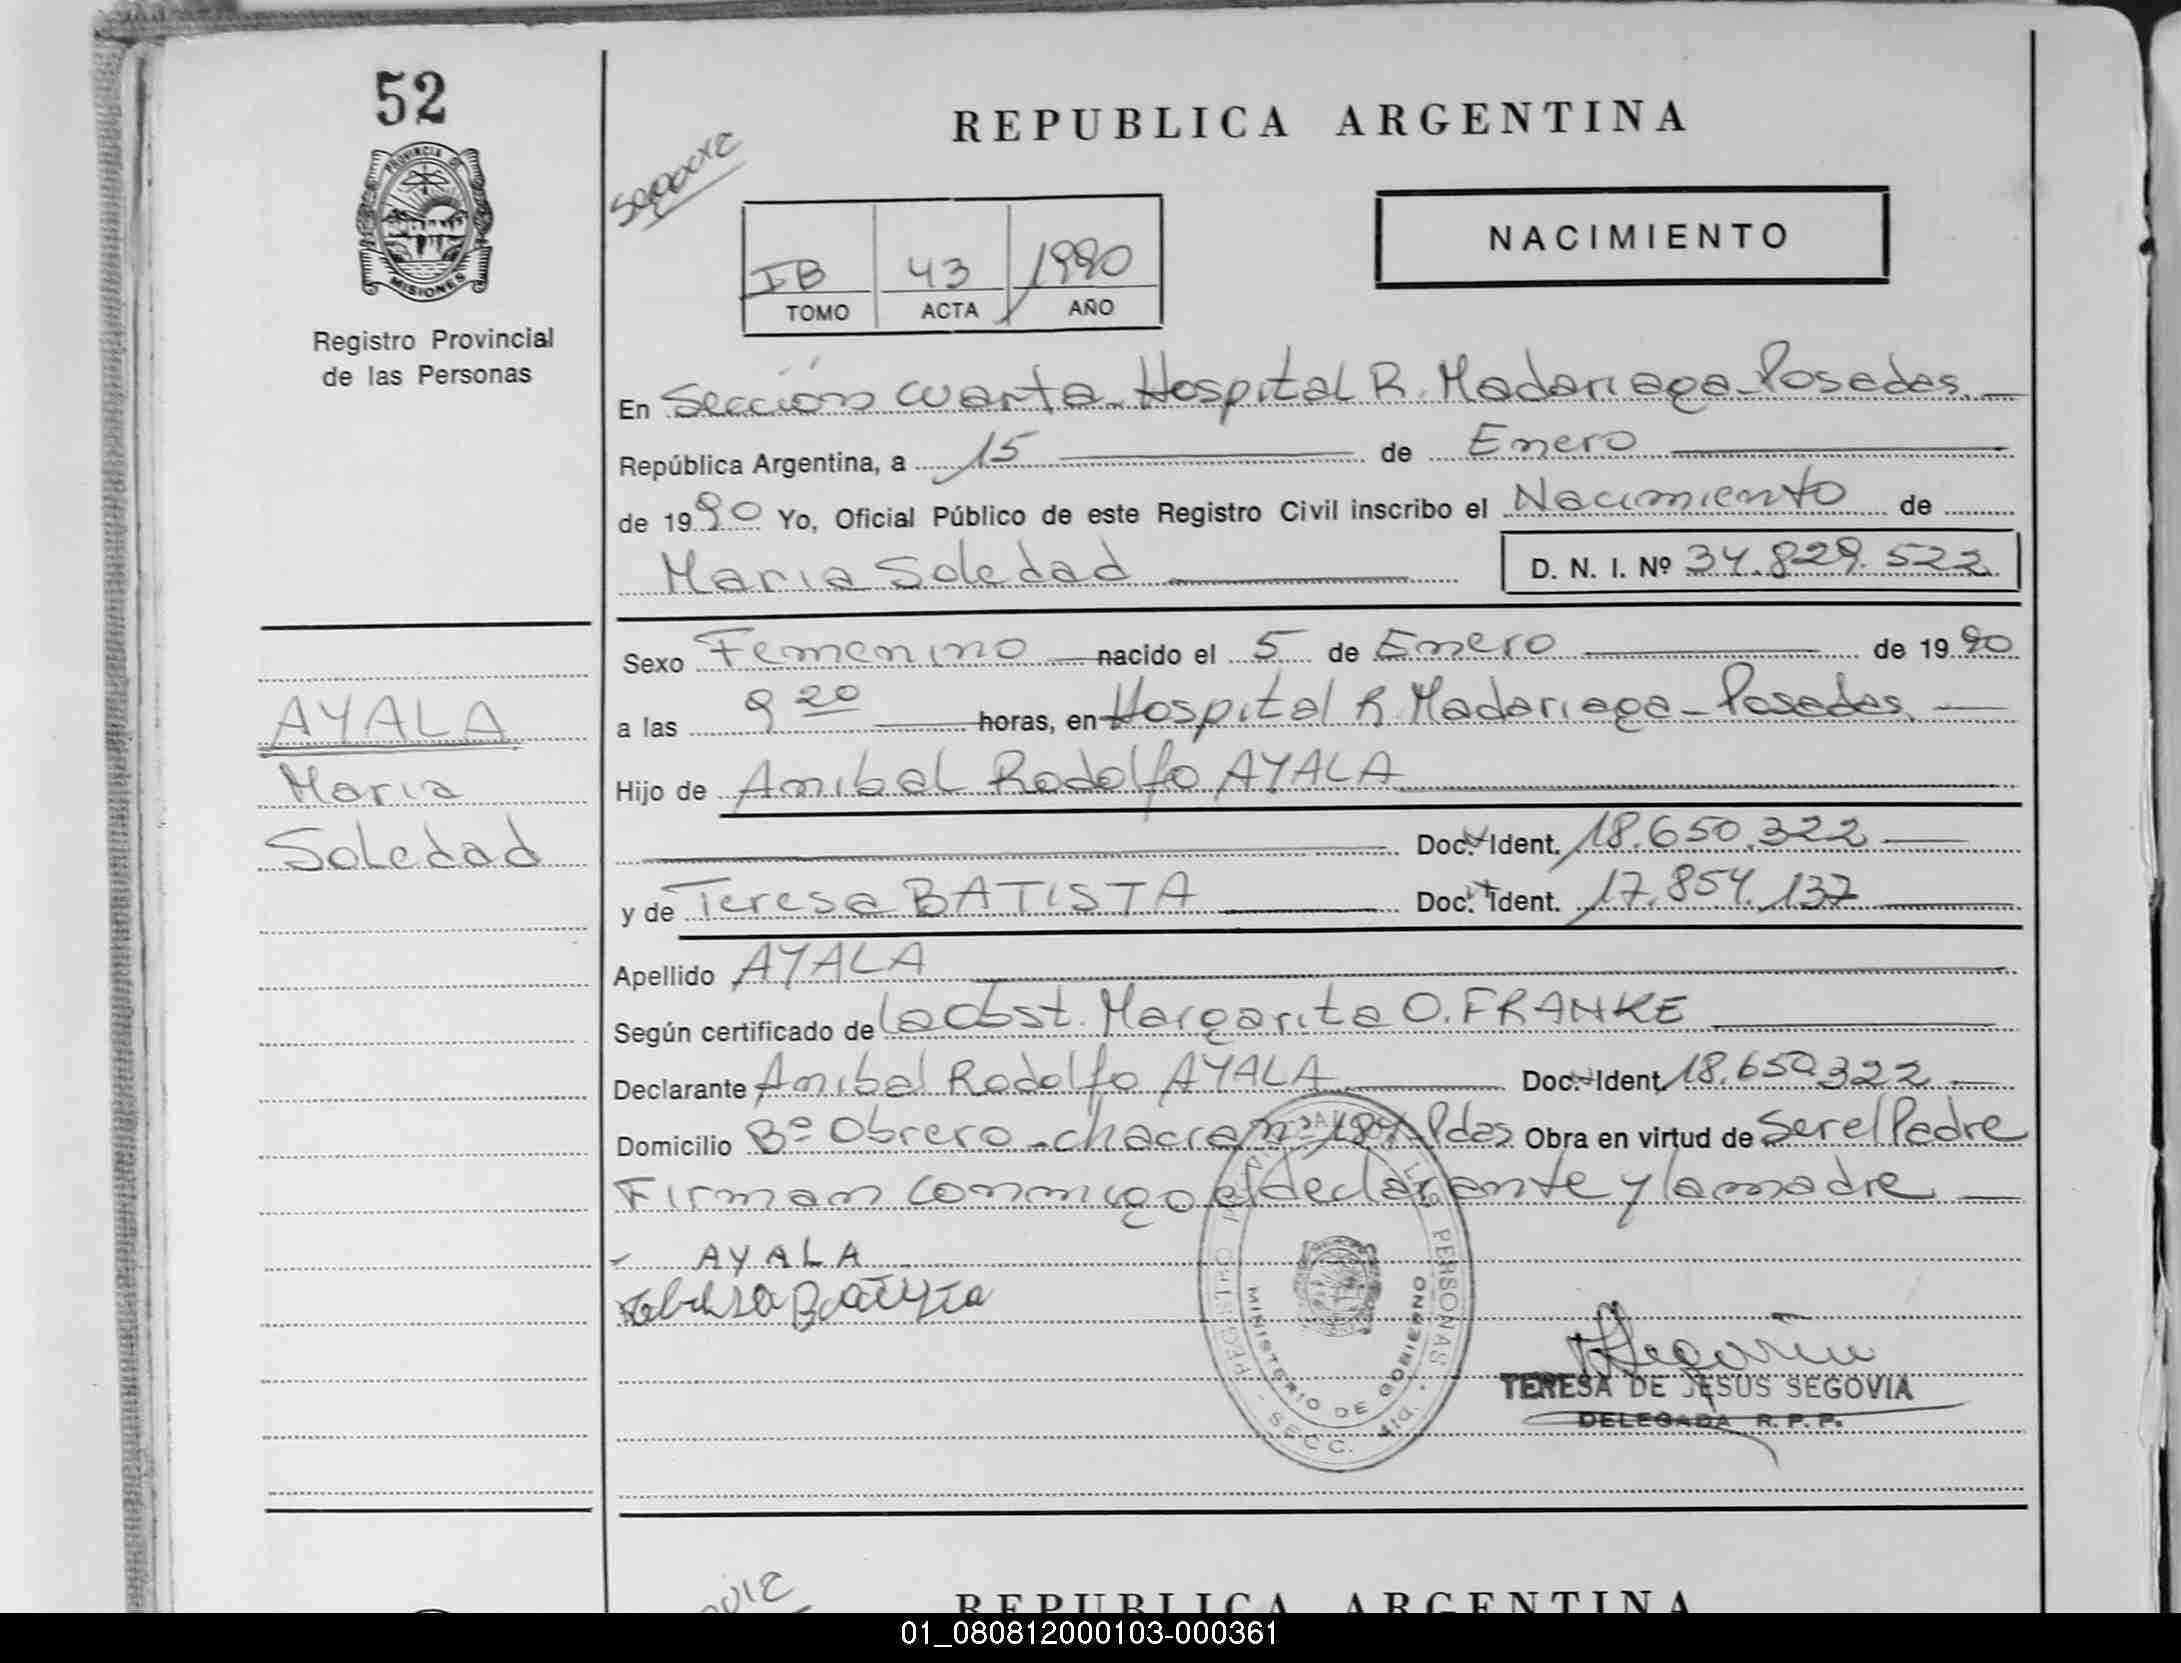 52
PROVINCIA DE
MISIONES
Registro Provincial
de las Personas
REPUBLICA ARGENTINA
IB 43 1990
TOMO ACTA AÑO
NACIMIENTO
En Sección cuarta Hospital R. Madariaga - Posadas.
República Argentina, a 15 de Enero
de 1990 Yo, Oficial Público de este Registro Civil inscribo el Nacimiento de
Maria Soledad D. N. I. Nº 34.829.522
Sexo Femenino nacido el 5 de Enero de 1990
a las 9 20 horas, en Hospital R. Madariaga - Posadas.
Hijo de Anibal Rodolfo AYALA
Doc. Ident. 18.650.322
y de Teresa BATISTA Doc. Ident. 17.854.137
Apellido AYALA
Según certificado de la Obst. Margarita O. FRANKE
Declarante Anibal Rodolfo AYALA Doc. Ident. 18.650.322
Domicilio Bº Obrero - chacra nº 189 Pdas. Obra en virtud de Ser el Padre
Firman conmigo el declarante y la madre
AYALA
Maria
Soledad
AYALA
Teresa Batista
REGISTRO PERSONAS
MINISTERIO DE GOBIERNO
SECC. 4ta.
TERESA DE JESUS SEGOVIA
DELEGADA R. P. P.
REPUBLICA ARGENTINA
01_080812000103-000361